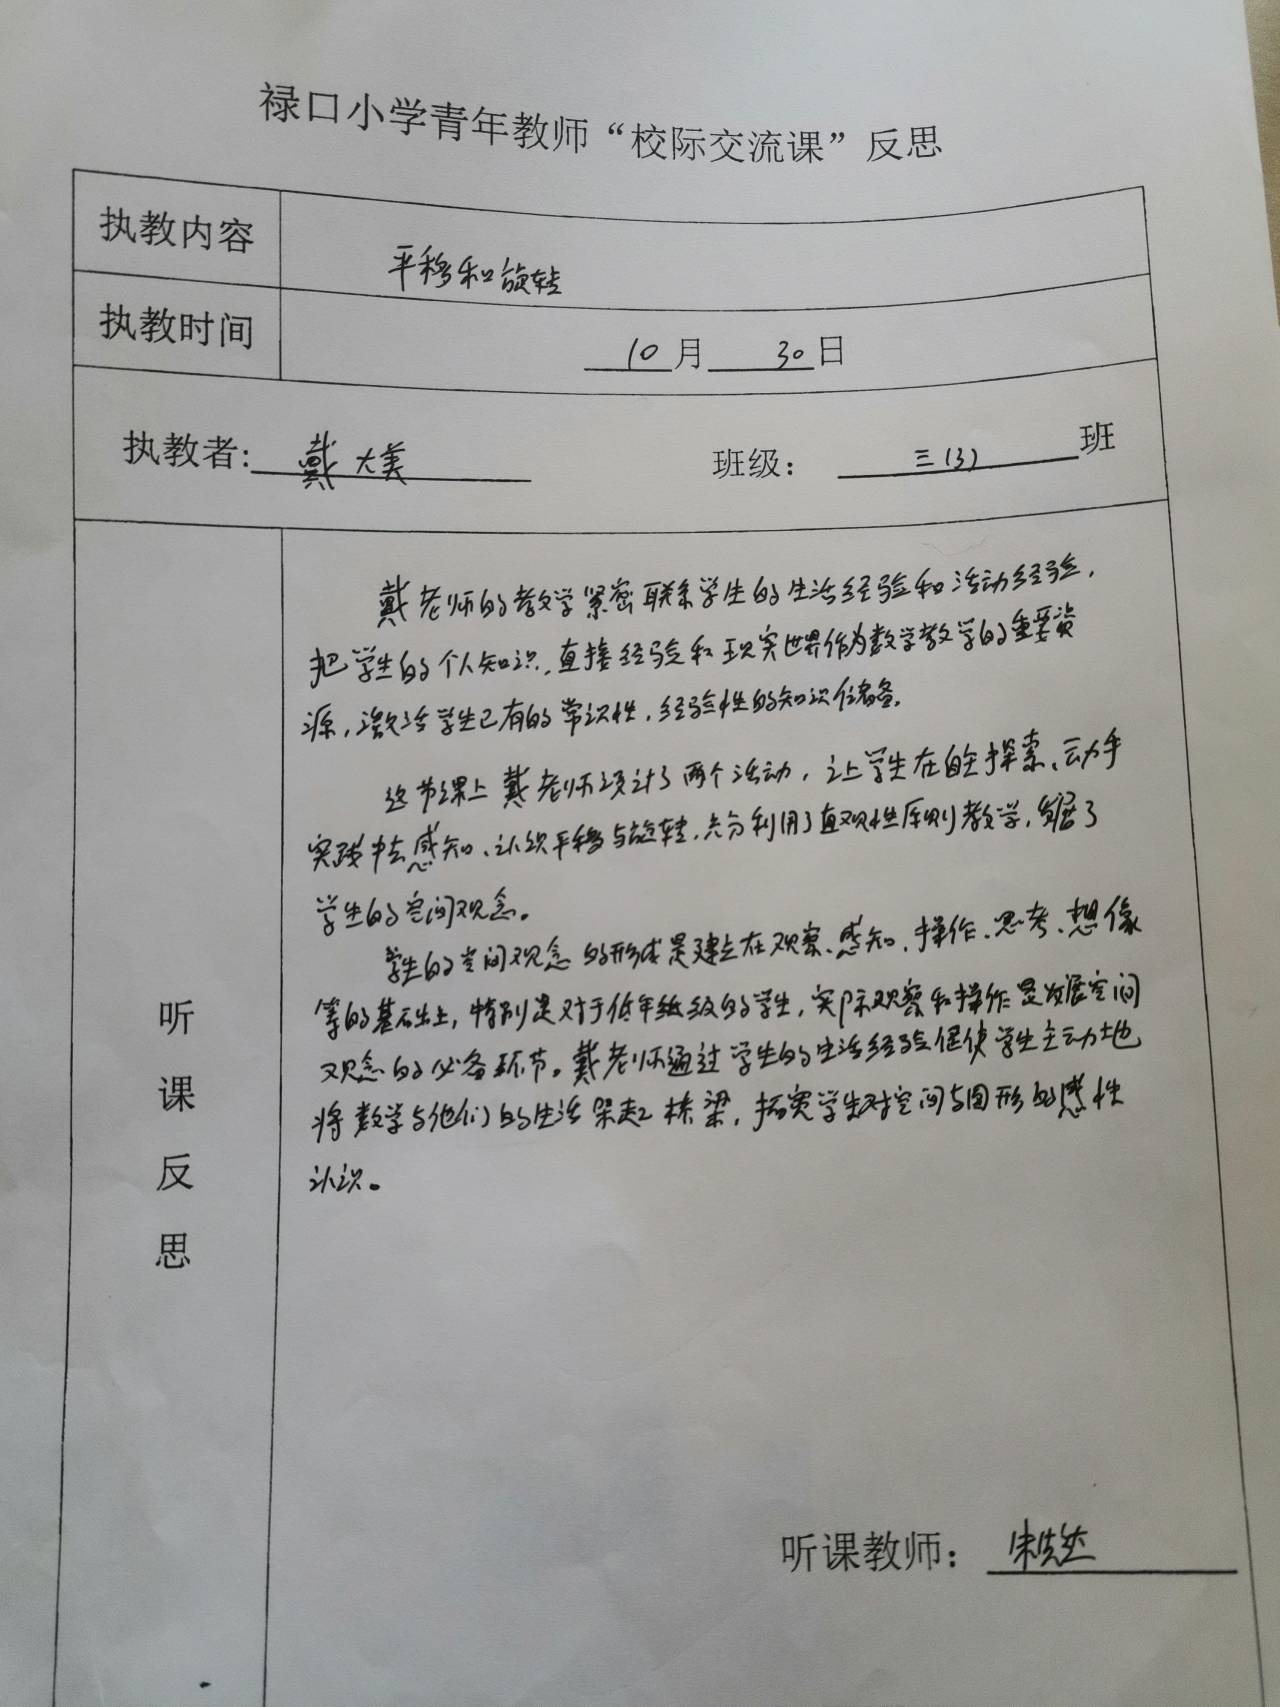 禄口小学青年教师“校际交流课”反思
执教内容
平移和旋转
执教时间
10月30日
执教者: 戴大美 班级: 三(3)班
听课反思
戴老师的教学紧密联系学生的生活经验和活动经验，
把学生的个人知识、直接经验和现实世界作为数学教学的重要资
源，激活学生已有的常识性，经验性的知识储备。
这节课上戴老师设计了两个活动，让学生在自主探索、动手
实践中去感知、认识平移与旋转，充分利用了直观性原则教学，发展了
学生的空间观念。
学生的空间观念的形成是建立在观察、感知、操作、思考、想像
等的基础上，特别是对于低年级的学生，实际观察和操作是发展空间
观念的必备环节。戴老师通过学生的生活经验促使学生主动地
将数学与他们的生活架起桥梁，拓宽学生对空间与图形的感性
认识。
听课教师: 朱